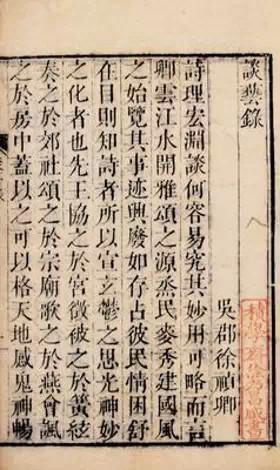 談藝錄
吳郡徐禎卿
積學齋徐乃昌藏書
詩理宏淵談何容易究其妙用可略而言
卿雲江水開雅頌之源烝民麥秀建國風
之始覽其事迹興廢如存占彼民情困舒
在目則知詩者所以宣玄鬱之思光神妙
之化者也先王協之於宮徵被之於簧絃
奏之於郊社頌之於宗廟歌之於燕會諷
之於房中蓋以之可以格天地感鬼神暢